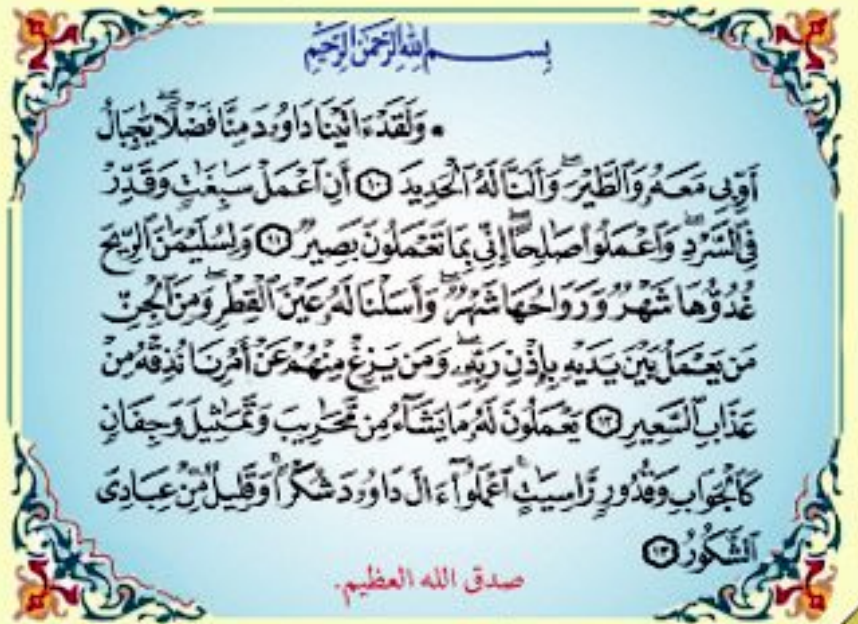 بِسْمِ اللَّهِ الرَّحْمَٰنِ الرَّحِيمِ
۞ وَلَقَدْ ءَاتَيْنَا دَاوُۥدَ مِنَّا فَضْلًاۖ يَٰجِبَالُ
أَوِّبِى مَعَهُۥ وَٱلطَّيْرَۖ وَأَلَنَّا لَهُ ٱلْحَدِيدَ ١٠ أَنِ ٱعْمَلْ سَٰبِغَٰتٍ وَقَدِّرْ
فِى ٱلسَّرْدِۖ وَٱعْمَلُوا۟ صَٰلِحًاۖ إِنِّى بِمَا تَعْمَلُونَ بَصِيرٌ ١١ وَلِسُلَيْمَٰنَ ٱلرِّيحَ
غُدُوُّهَا شَهْرٌ وَرَوَاحُهَا شَهْرٌۖ وَأَسَلْنَا لَهُۥ عَيْنَ ٱلْقِطْرِۖ وَمِنَ ٱلْجِنِّ
مَن يَعْمَلُ بَيْنَ يَدَيْهِ بِإِذْنِ رَبِّهِۦۖ وَمَن يَزِغْ مِنْهُمْ عَنْ أَمْرِنَا نُذِقْهُ مِنْ
عَذَابِ ٱلسَّعِيرِ ١٢ يَعْمَلُونَ لَهُۥ مَا يَشَآءُ مِن مَّحَٰرِيبَ وَتَمَٰثِيلَ وَجِفَانٍ
كَٱلْجَوَابِ وَقُدُورٍ رَّاسِيَٰتٍۚ ٱعْمَلُوٓا۟ ءَالَ دَاوُۥدَ شُكْرًاۚ وَقَلِيلٌ مِّنْ عِبَادِىَ
ٱلشَّكُورُ ١٣
صدق الله العظيم.